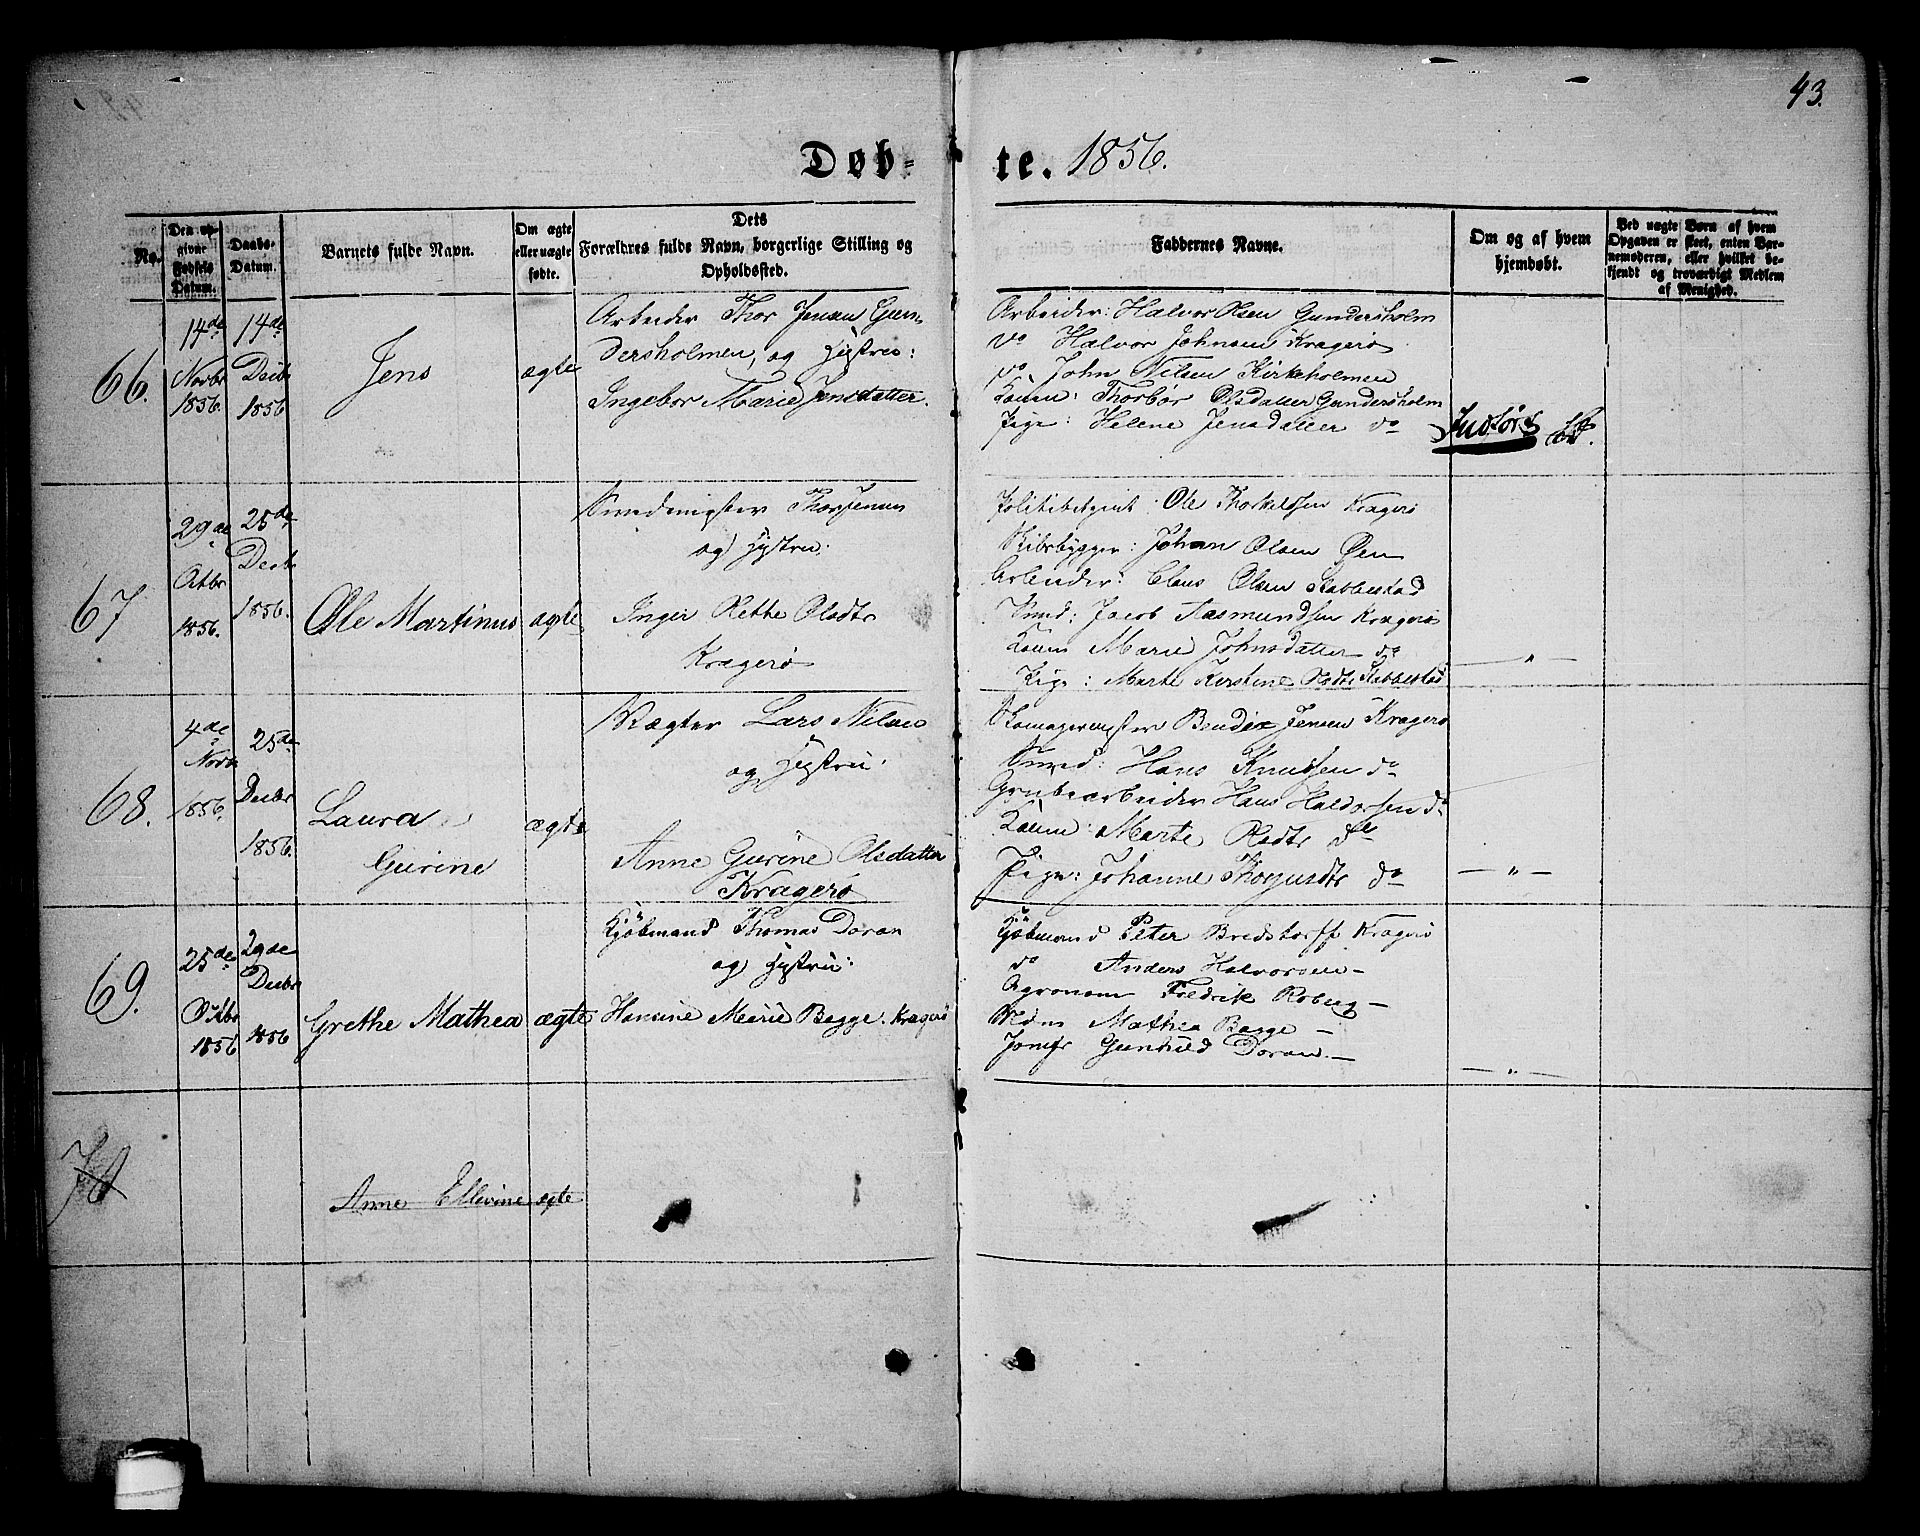 43.
Døb-
te. 1856.
No.
Den op-
givne
Fødsels
Datum.
Daabs-
Datum.
Barnets fulde Navn.
Om ægte
eller uægte
fødte.
Dets
Forældres fulde Navn, borgerlige Stilling og
Opholdssted.
Faddernes Navne.
Om og af hvem
hjemdøbt.
Ved uægte Børn af hvem
Opgaven er skeet, enten Bar-
nemoderen, eller hvilket be-
kjendt og troværdigt Medlem
af Menighed.
66.
14de
Novbr
1856.
14de
Decbr
1856
Jens
ægte
Arbeider Thor Jensen Gun-
dersholmen, og Hustru:
Ingebor Marie Jensdatter.
Arbeider: Halvor Olsen Gundersholm
do Halvor Johnsen Kragerø
do John Nilsen Kirkeholmen
Konen: Thorbor Olsdatter Gundersholm
Pige: Helene Jensdatter do
67
29de
Octbr
1856.
25de
Decbr
1856.
Ole Martinus
ægte
Smedmester Thor Jensen
og Hustru:
Inger Olsdtr
Kragerø
Politibetjent: Ole Thorkelsen Kragerø
Skibsbygger: Johan Olsen Øen
Arbeider: Claus Olsen Stabbestad
Smed: Jacob Kragerø
Konen Marie Johnsdatter do
Pige: Marte Kirstine Olsdtr Stabbestad
— " —
68.
4de
Novbr
1856.
25de
Decbr
1856.
Laura
Gurine
ægte
Vægter Lars Nilsen
og Hustru:
Anne Gurine Olsdatter
Kragerø
Skomagermester Bendix Jensen Kragerø
Smed: Hans Knudsen do
Grubearbeider Hans Haldorsen do
Konen: Marte Olsdtr do
Pige: Johanne do
— " —
69.
25de
Octbr
1856
29de
Decbr
1856
Grethe Mathea
ægte
Kjøbmand Thomas Doran
og Hustru:
Hansine Marie Bagge. Kragerø
Kjøbmand Peter Bredstorff Kragerø
do Anders Halvorsen —
Agronom Fredrik Roberg —
Mathea Bagge —
Jomfr Gunhild Doran. —
— " —
70
Anne Ellevine
ægte